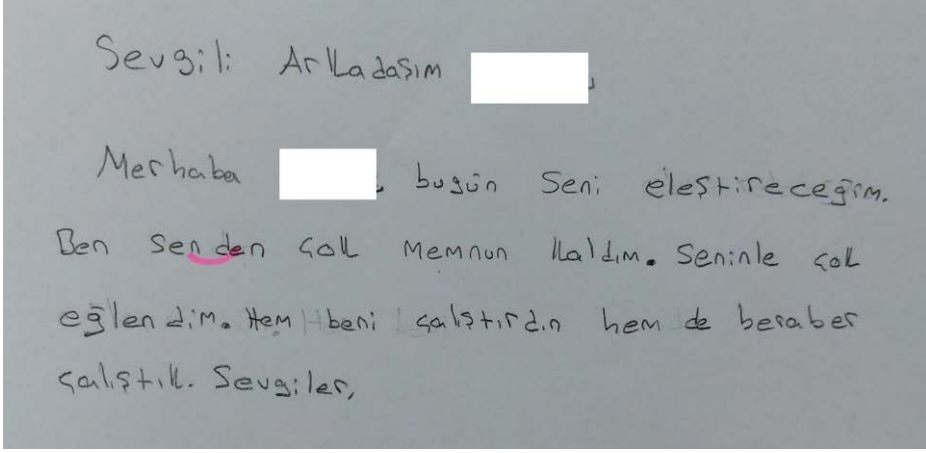 Sevgili Arkadaşım ,
Merhaba , bugün Seni eleştireceğim.
Ben senden çok memnun kaldım. Seninle çok
eğlendim. Hem beni çalıştırdın hem de beraber
çalıştık. Sevgiler,